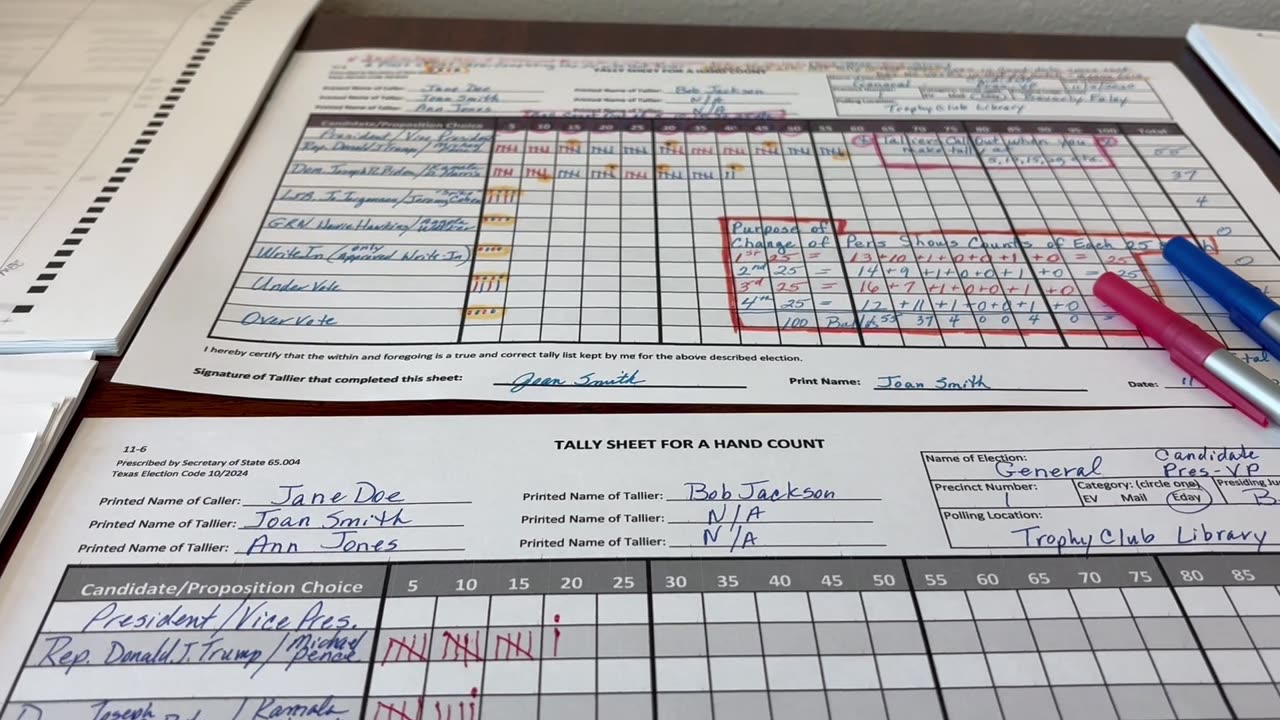 TALLY SHEET FOR A HAND COUNT
Printed Name of Caller: Jane Doe Printed Name of Tallier: Bob Jackson
Printed Name of Tallier: Joan Smith Printed Name of Tallier: N/A
Printed Name of Tallier: Ann Jones Printed Name of Tallier: N/A
General
Beverly Foley
Trophy Club Library
Candidate/Proposition Choice 5 10 15 20 25 30 35 40 45 50 55 60 65 70 75 80 85 90 95 100 Total
President/Vice President
Rep. Donald J. Trump/Michael 55
Talliers Call Out when you
make tally at
5, 10, 15, 20, etc.
Dem. Joseph R. Biden/Kamala D. Harris 37
Lib. Jo Jorgensen/Jeremy Cohen 4
GRN Howie Hawkins/Angela Walker 0
Write In (only Approved Write-In) 0
Under Vote
Over Vote
Purpose of
Change of Pens Shows Counts of Each 25
1st 25 = 13+10+1+0+0+1+0 = 25
2nd 25 = 14+9+1+0+0+1+0 = 25
3rd 25 = 16+7+1+0+0+1+0
4th 25 = 12+11+1+0+0+1+0
100 55 37 4 0 0 4 0 =
I hereby certify that the within and foregoing is a true and correct tally list kept by me for the above described election.
Signature of Tallier that completed this sheet: Joan Smith Print Name: Joan Smith Date: 11
11-6
TALLY SHEET FOR A HAND COUNT
Prescribed by Secretary of State 65.004
Texas Election Code 10/2024
Name of Election: General Candidate Pres-VP
Printed Name of Caller: Jane Doe Printed Name of Tallier: Bob Jackson
Precinct Number: 1 Category: (circle one) EV Mail Eday Presiding Ju B
Printed Name of Tallier: Joan Smith Printed Name of Tallier: N/A
Printed Name of Tallier: Ann Jones Printed Name of Tallier: N/A
Polling Location: Trophy Club Library
Candidate/Proposition Choice 5 10 15 20 25 30 35 40 45 50 55 60 65 70 75 80 85
President/Vice Pres.
Rep. Donald J. Trump/Michael Pence
Joseph / Kamala